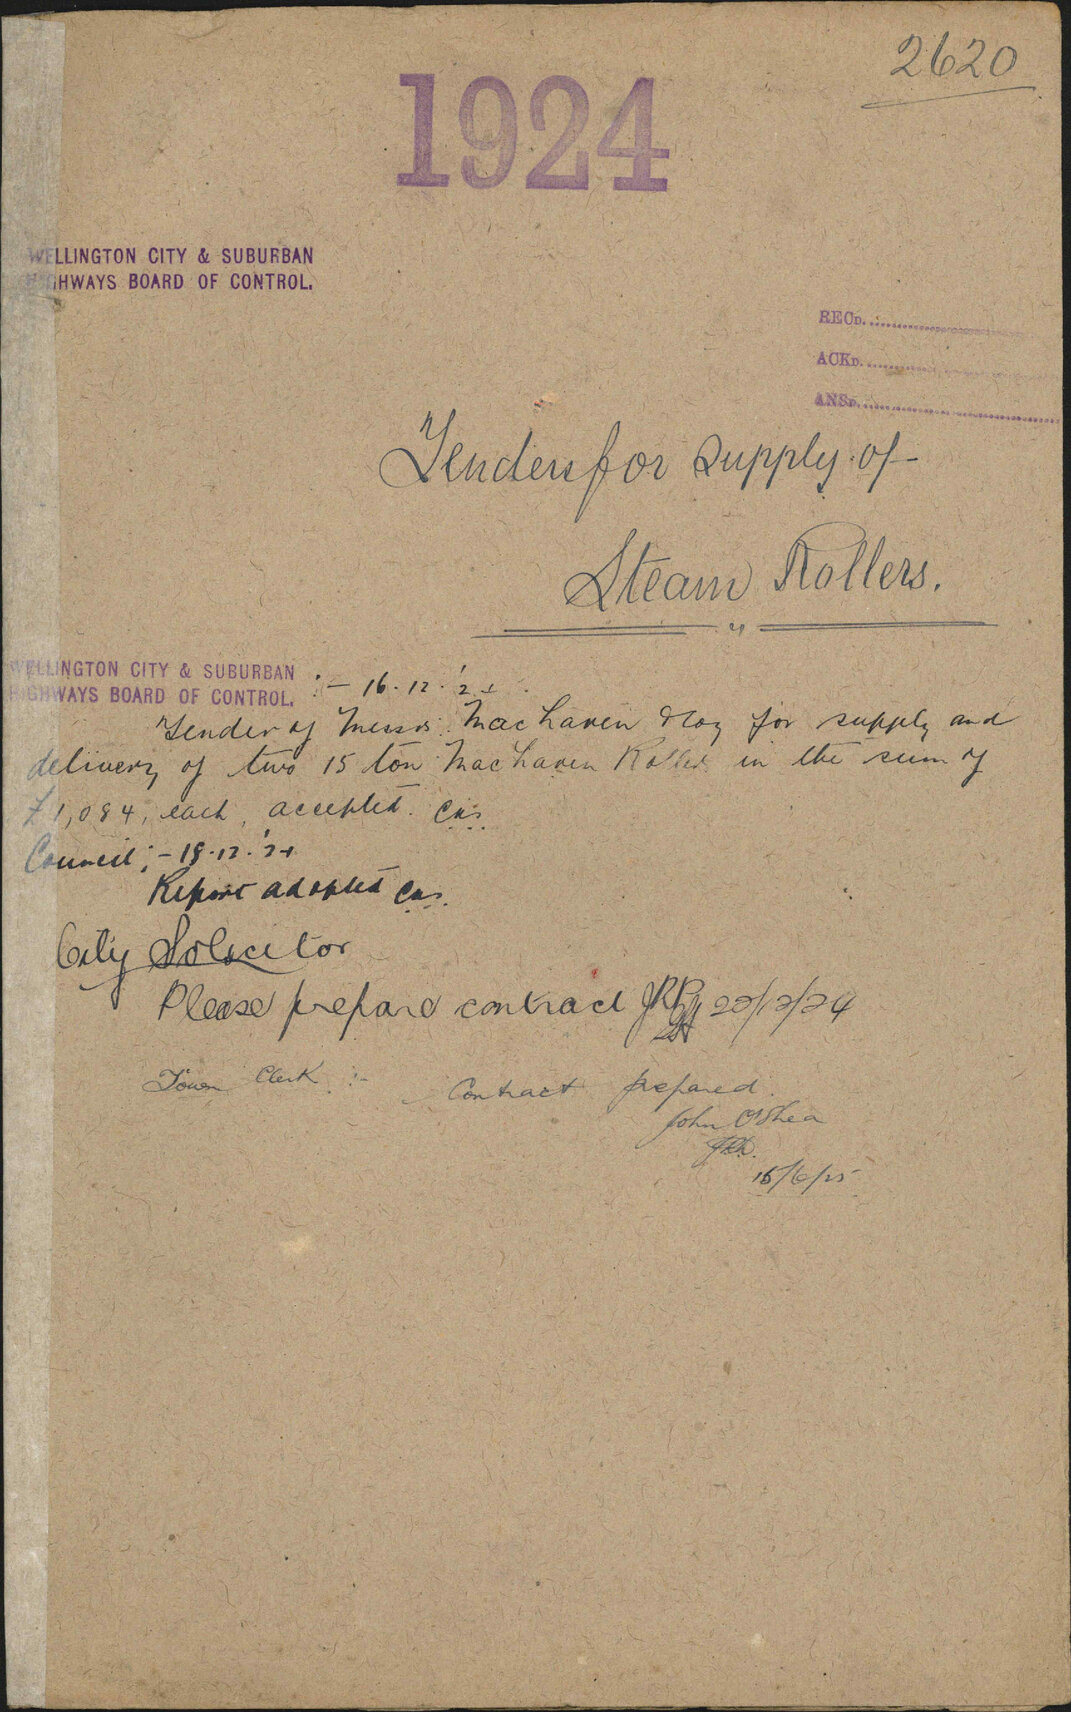 2620
1924
WELLINGTON CITY & SUBURBAN
HIGHWAYS BOARD OF CONTROL.
RECD.
ACKD.
ANSD.
Tenders for supply of
Steam Rollers.
WELLINGTON CITY & SUBURBAN
HIGHWAYS BOARD OF CONTROL. :- 16.12.'24
Tender of Messrs. MacLaren & Coy for supply and
delivery of two 15 ton MacLaren Rollers in the sum of
£1,084, each, accepted.
Council:- 18.12.'24
Report adopted
City Solicitor
Please prepare contract 22/12/24
Town Clerk :- Contract prepared.
John O'Shea
15/6/25